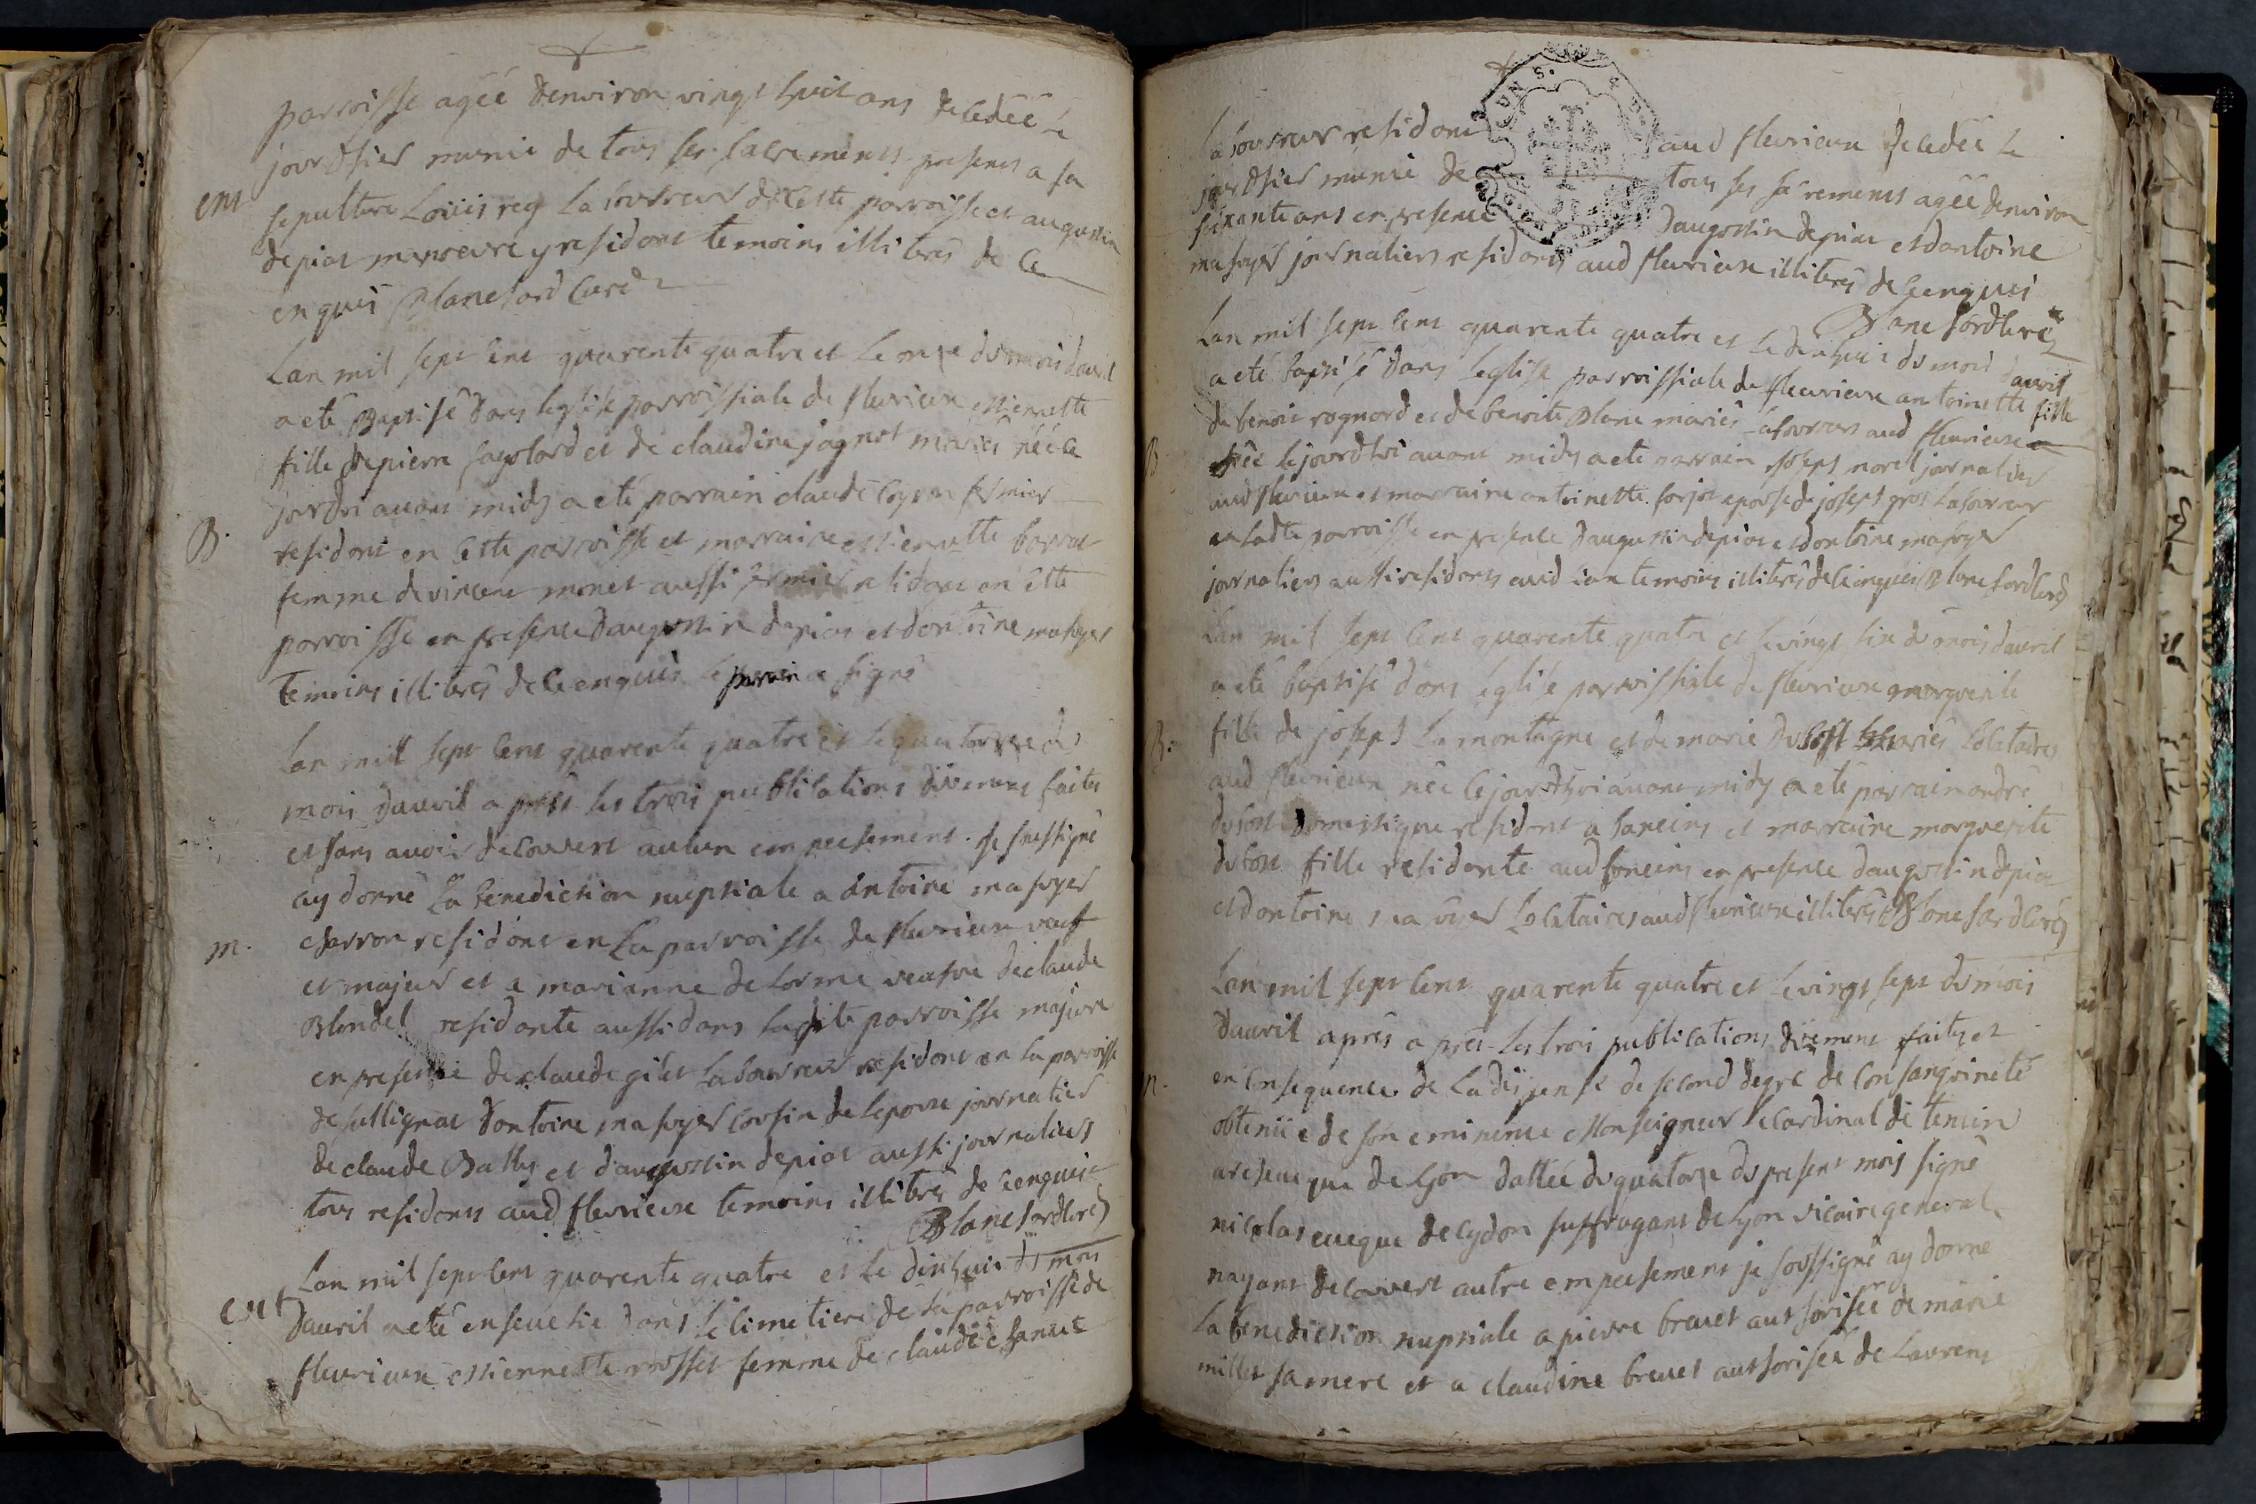 parroisse agéé denviron vingt huit ans decedéé le
jourdhier munie de tous ses sacrements presents a sa
ent
sepulture Loüis rey Laboureur de Ceste parroisse et augustin
depiat manoevre y residant temoins illiterés de Ce
enquis Blanchard Curé
Lan mil sept Cent quarente quatre et Le onze du mois davril
a eté Baptisé dans leglise parroissiale de fleurieux estiennette
fille de pierre fagotard et de claudine jagnot mariés néé Ce
jourdui avant midy a eté parrain claude Coyon fermier
B.
resident en Ceste parroisse et marraine estiennette borrat
femme de vincent monet aussi fermier resident en Cette
parroisse en presence daugustin depiat et dantoine mafoyer
temoins illiterés de Ce enquis le parrain a signé
Lan mil sept Cent quarente quatre et le quatorze du
mois davril apres les trois publications düement faites
et sans avoir decouvert aucun empechement je soussigné
ay donné La benediction nuptiale a antoine mafoyer
m.
charron resident en La parroisse de fleurieux veuf
et majeur et a marianne delorme veufve de claude
Blondel residante aussi dans Ladite parroisse majeure
en presence de claude gilet Laboureur resident en La parroisse
de sullignat dantoine mafoyer cousin de lepoux journalier
de claude Bally et daugustin depiat aussi journaliers
tous residents aud fleurieux temoins illiterés de Ce enquis
Blanchard Curé
Lan mil sept Cent quarente quatre et le dixhuit du mois
ent
davril a eté ensevelie dans le Cimetiere de La parroisse de
fleurieux estiennette rousset femme de claude chanut
Laboureur resident aud fleurieux decedéé Le
jourdhier munie de tous ses sacrements agéé denviron
soixante ans en presence daugustin depiat et dantoine
mafoyer journaliers residants aud fleurieux illiterés de Ce enquis
Blanchard Curé
Lan mil sept Cent quarente quatre et le dixhuit du mois davril
a eté baptisé dans leglise parroissiale de fleurieux antoinette fille
de benoit rognard et de benoite Blanc mariés Laboureurs aud fleurieux
B
néé Cejourdhui avant midy a eté parrain joseph morel journalier
aud fleurieux et marraine antoinette forjot epouse de joseph gros Laboureur
en Ladte parroisse en presence daugustin depiat et dantoine mafoyer
journaliers aussi residants aud lieu temoins illiterés de Ce enquis Blanchard Curé
Lan mil sept Cent quarente quatre et le vingt six du mois davril
a eté baptisé dans leglise parroissiale de fleurieux marguerite
B.
fille de joseph La montagne et de marie dubost mariés Locataires
aud fleurieux néé Cejourdhui avant midy a eté parrain andré
dubost domestique resident a baneins et marraine marguerite
dubost fille residante aud baneins en presence daugustin depiat
et dantoine mafoyer Locataires aud fleurieux illiterés Blanchard Curé
Lan mil sept Cent quarente quatre et le vingt sept du mois
davril aprés aprés les trois publications düement faites et
m.
en Consequence de La dispense de second degré de Consanguineté
obtenüe de son eminence Monseigneur le Cardinal de tencin
archeveque de Lyon dattéé du quatorze du present mois signé
nicolas eveque de cydon suffragant de Lyon vicaire general
nayant decouvert autre empechement je soussigné ay donné
La benediction nuptiale a pierre brevet authorisé de marie
millet sa mere et a claudine brevet authoriséé de Laurent